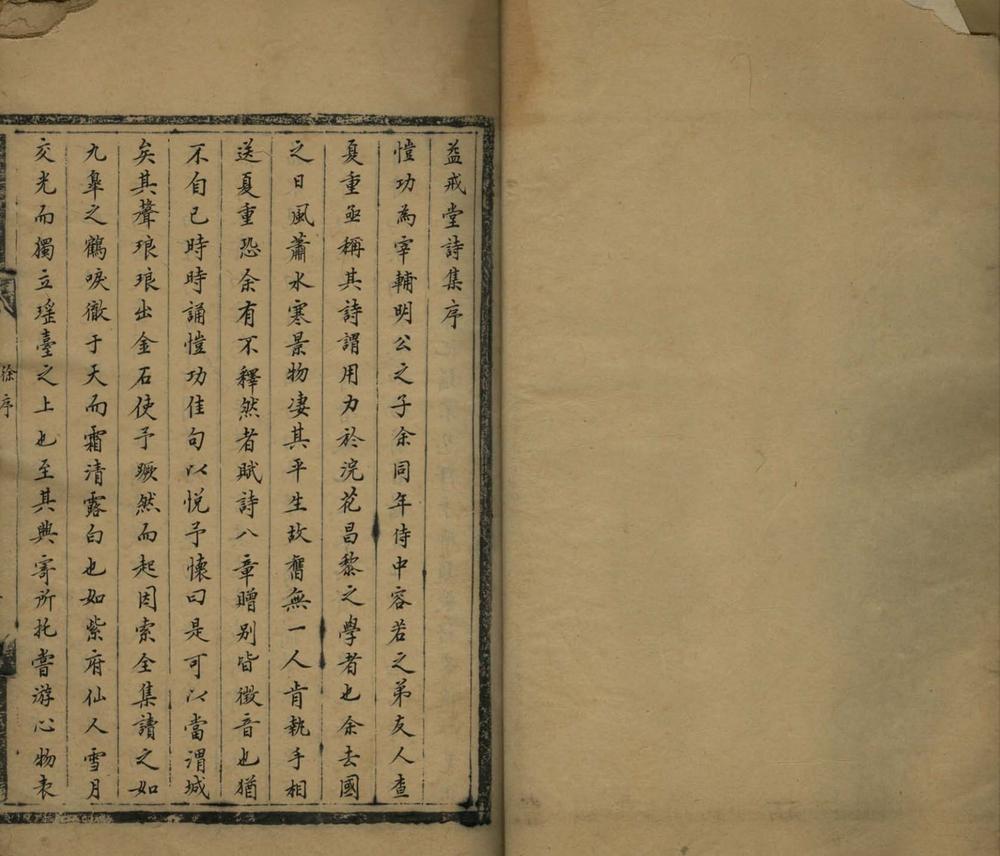 益戒堂詩集序
愷功為宰輔明公之子余同年侍中容若之弟友人查
夏重亟稱其詩謂用力於浣花昌黎之學者也余去國
之日風蕭水寒景物凄其平生故舊無一人肯執手相
送夏重恐余有不釋然者賦詩八章贈別皆徵音也猶
不自已時時誦愷功佳句以悅予懷曰是可以當渭城
矣其聲琅琅出金石使予蹶然而起因索全集讀之如
九臯之鶴唳徹于天而霜清露白也如紫府仙人雪月
交光而獨立瑤臺之上也至其興寄所托嘗游心物表
徐序